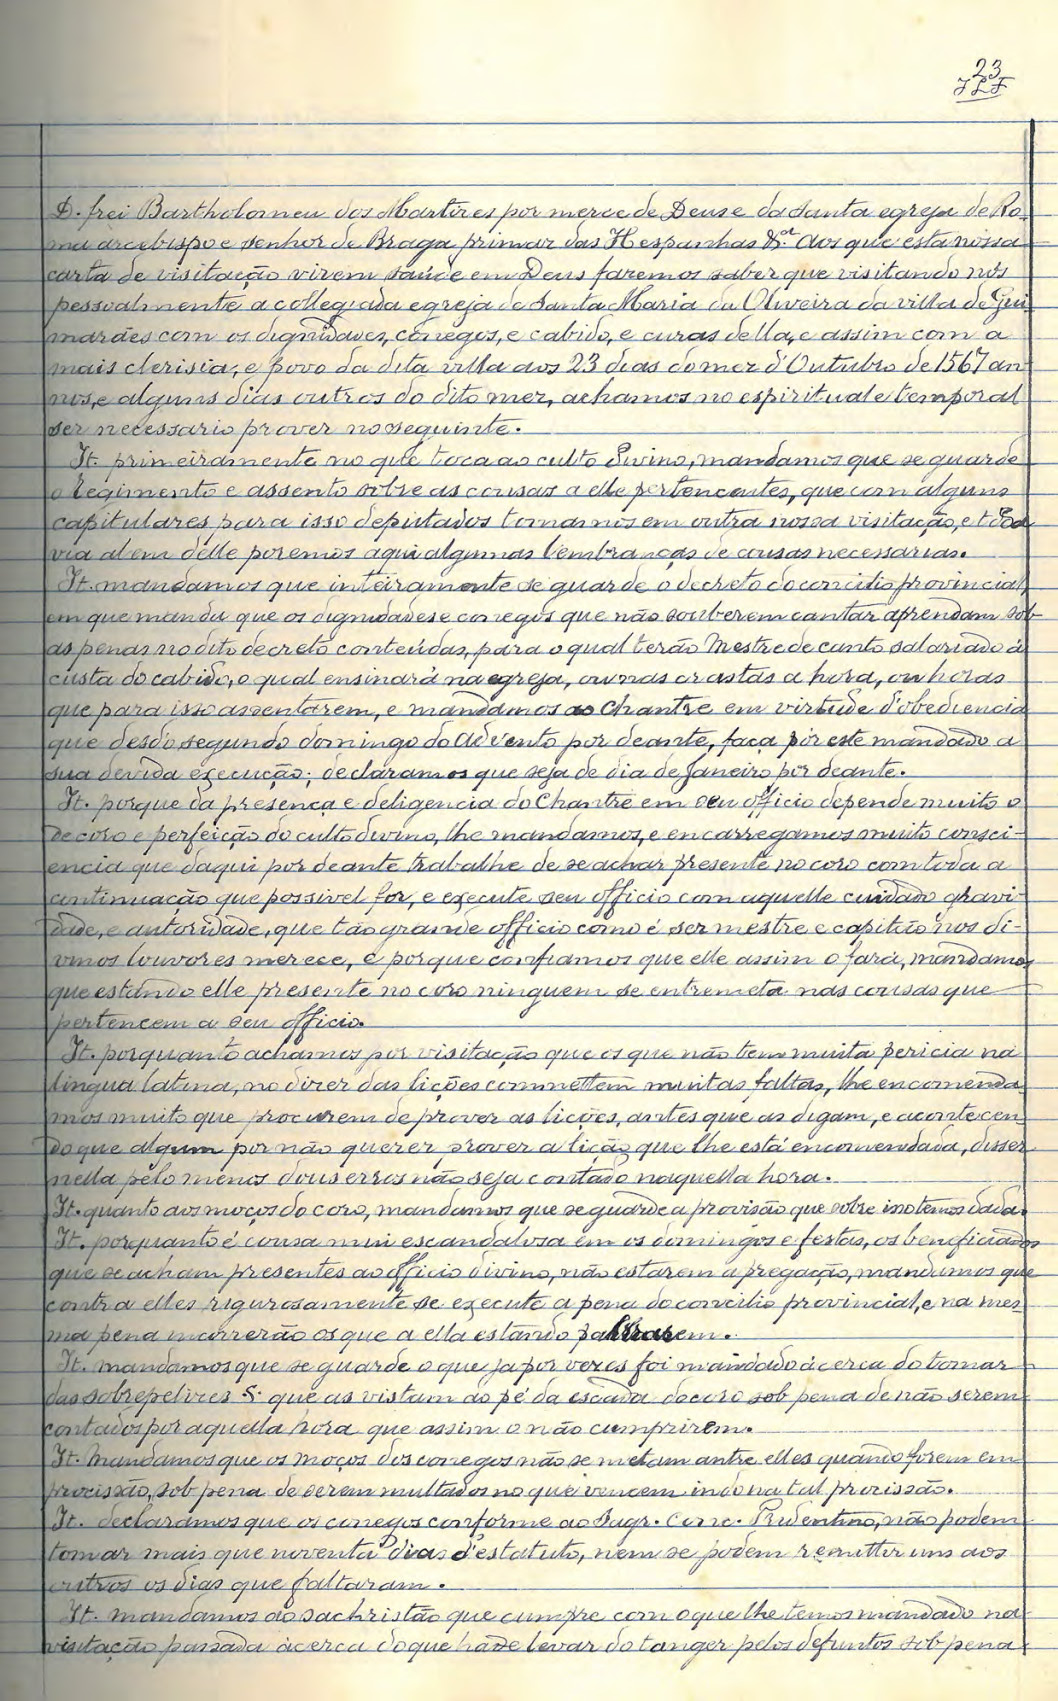 23
JLF
D. frei Bartholomeu dos Martires por merce de Deus e da santa egreja de Ro-
ma arcebispo e senhor de Braga primaz das Hespanhas &.ª Aos que esta nossa
carta de visitação virem saude em Deus fazemos saber que visitando nós
pessoalmente a collegiada egreja de Santa Maria da Oliveira da villa de Gui-
marães com os dignidades, conegos, e cabido, e curas della, e assim com a
mais clerisia, e povo da dita villa aos 23 dias do mez d'Outubro de 1567 an-
nos, e alguns dias outros do dito mez, achamos no espiritual e temporal
ser necessario prover no seguinte.
It. primeiramente no que toca ao culto Divino, mandamos que se guarde
o Regimento e assento sobre as cousas a elle pertencentes, que com alguns
capitulares para isso deputados tomamos em outra nossa visitação, e toda
via alem delle poremos aqui algumas lembranças de cousas necessarias.
It. mandamos que inteiramente se guarde o decreto do concilio provincial,
em que manda que os dignidades e conegos que não souberem cantar aprendam sob
as penas no dito decreto conteúdas, para o qual terão Mestre de canto salariado á
custa do cabido, o qual ensinará na egreja, ou nas crastas a hora, ou horas
que para isso assentarem, e mandamos ao Chantre em virtude d'obediencia
que desdo segundo domingo do Advento por deante, faça pôr este mandado a
sua devida execução; declaramos que seja de dia de Janeiro por deante.
It. porque da presença e deligencia do Chantre em seu officio depende muito o
decoro e perfeição do culto divino, lhe mandamos, e encarregamos muito consci-
encia que daqui por deante trabalhe de se achar presente no coro com toda a
continuação que possivel for, e execute seu officio com aquelle cuidado gravi-
dade, e autoridade, que tão grande officio como é ser mestre e capitão nos di-
vinos louvores merece, e porque confiamos que elle assim o fará, mandamos
que estando elle presente no coro ninguem se entremeta nas cousas que
pertencem a seu officio.
It. porquanto achamos por visitação que os que não tem muita pericia na
lingua latina, no dizer das lições commettem muitas faltas, lhe encomenda-
mos muito que procurem de prover as lições, antes que as digam, e acontecen-
do que algum por não querer prover a lição que lhe está encomendada, disser
nella pelo menos dous erros não seja contado naquella hora.
It. quanto aos moços do coro, mandamos que se guarde a provisão que sobre isso temos dada.
It. porquanto é cousa mui escandalosa em os domingos e festas, os beneficiados
que se acham presentes ao officio divino, não estarem á pregação, mandamos que
contra elles rigurosamente se execute a pena do concilio provincial, e na mes-
ma pena incorrerão os que a ella estando palrarem.
It. mandamos que se guarde o que ja por vezes foi mandado ácerca do tomar
das sobrepelizes S. que as vistam ao pé da escada do coro sob pena de não serem
contados por aquella hora que assim o não cumprirem.
It. Mandamos que os moços dos conegos não se metam antre elles quando forem em
procissão, sob pena de serem multados no que vencem indo na tal procissão.
It. declaramos que os conegos conforme ao Sagr. Conc. Tridentino, não podem
tomar mais que noventa dias d'estatuto, nem se podem remittir uns aos
outros os dias que faltaram.
It. mandamos ao sachristão que cumpre com o que lhe temos mandado na
visitação passada ácerca do que ha de levar do tanger pelos defuntos sob pena